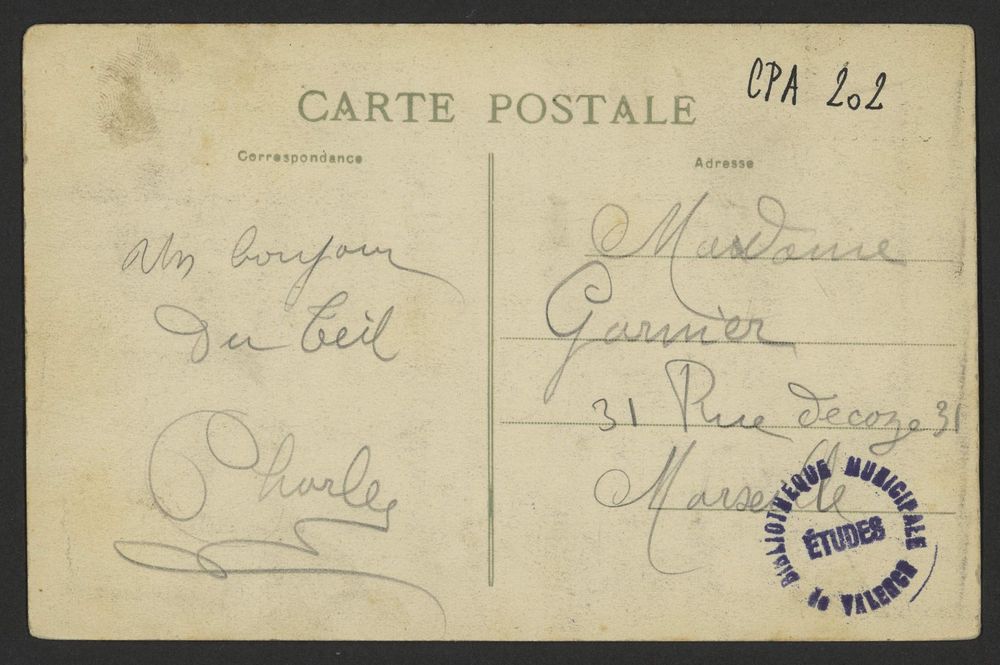 CARTE POSTALE
CPA 202
Correspondance
Un bonjour
Du Teil
Charles
Adresse
Madame
Garnier
31 Rue Decoze 31
Marseille
BIBLIOTHÈQUE MUNICIPALE
ÉTUDES
de VALENCE